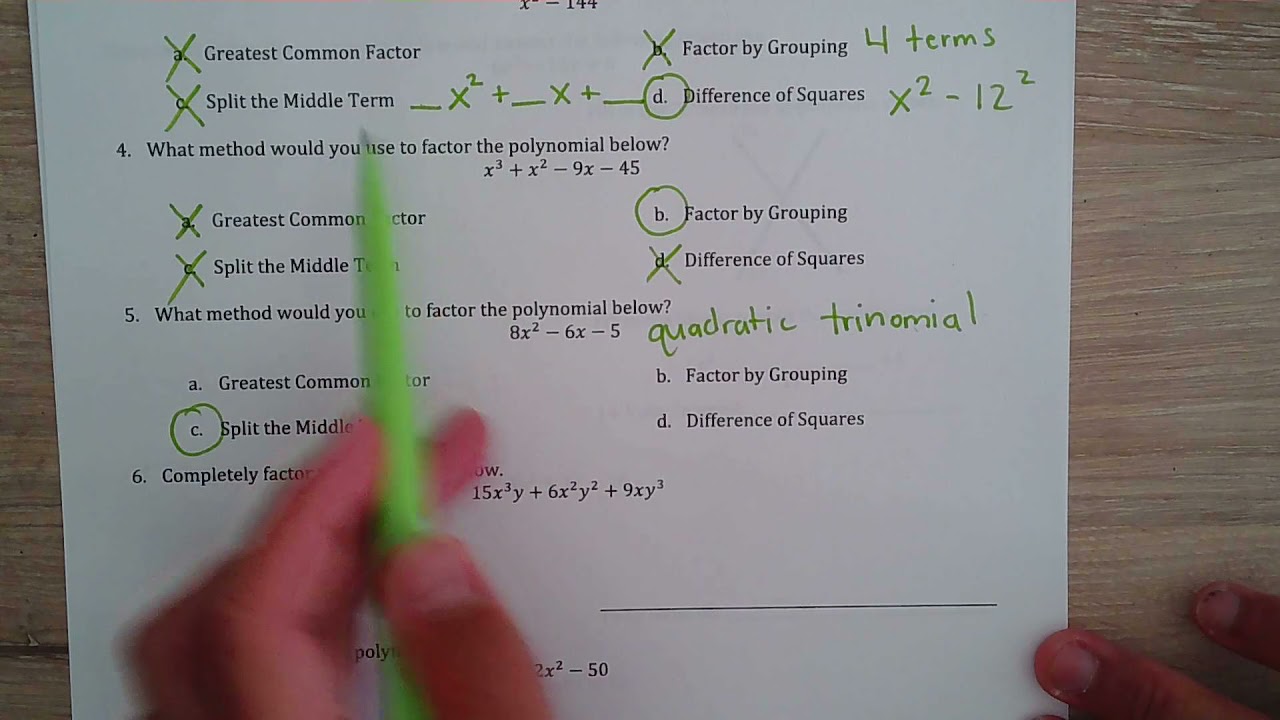 x² − 144
a. Greatest Common Factor b. Factor by Grouping 4 terms
c. Split the Middle Term _x² + _x + _ d. Difference of Squares x² - 12²
4. What method would you use to factor the polynomial below?
x³ + x² − 9x − 45
a. Greatest Common b. Factor by Grouping
c. Split the Middle d. Difference of Squares
5. What method would you to factor the polynomial below?
8x² − 6x − 5 quadratic trinomial
a. Greatest Common b. Factor by Grouping
c. Split the Middle d. Difference of Squares
6. Completely factor
15x³y + 6x²y² + 9xy³
2x² − 50